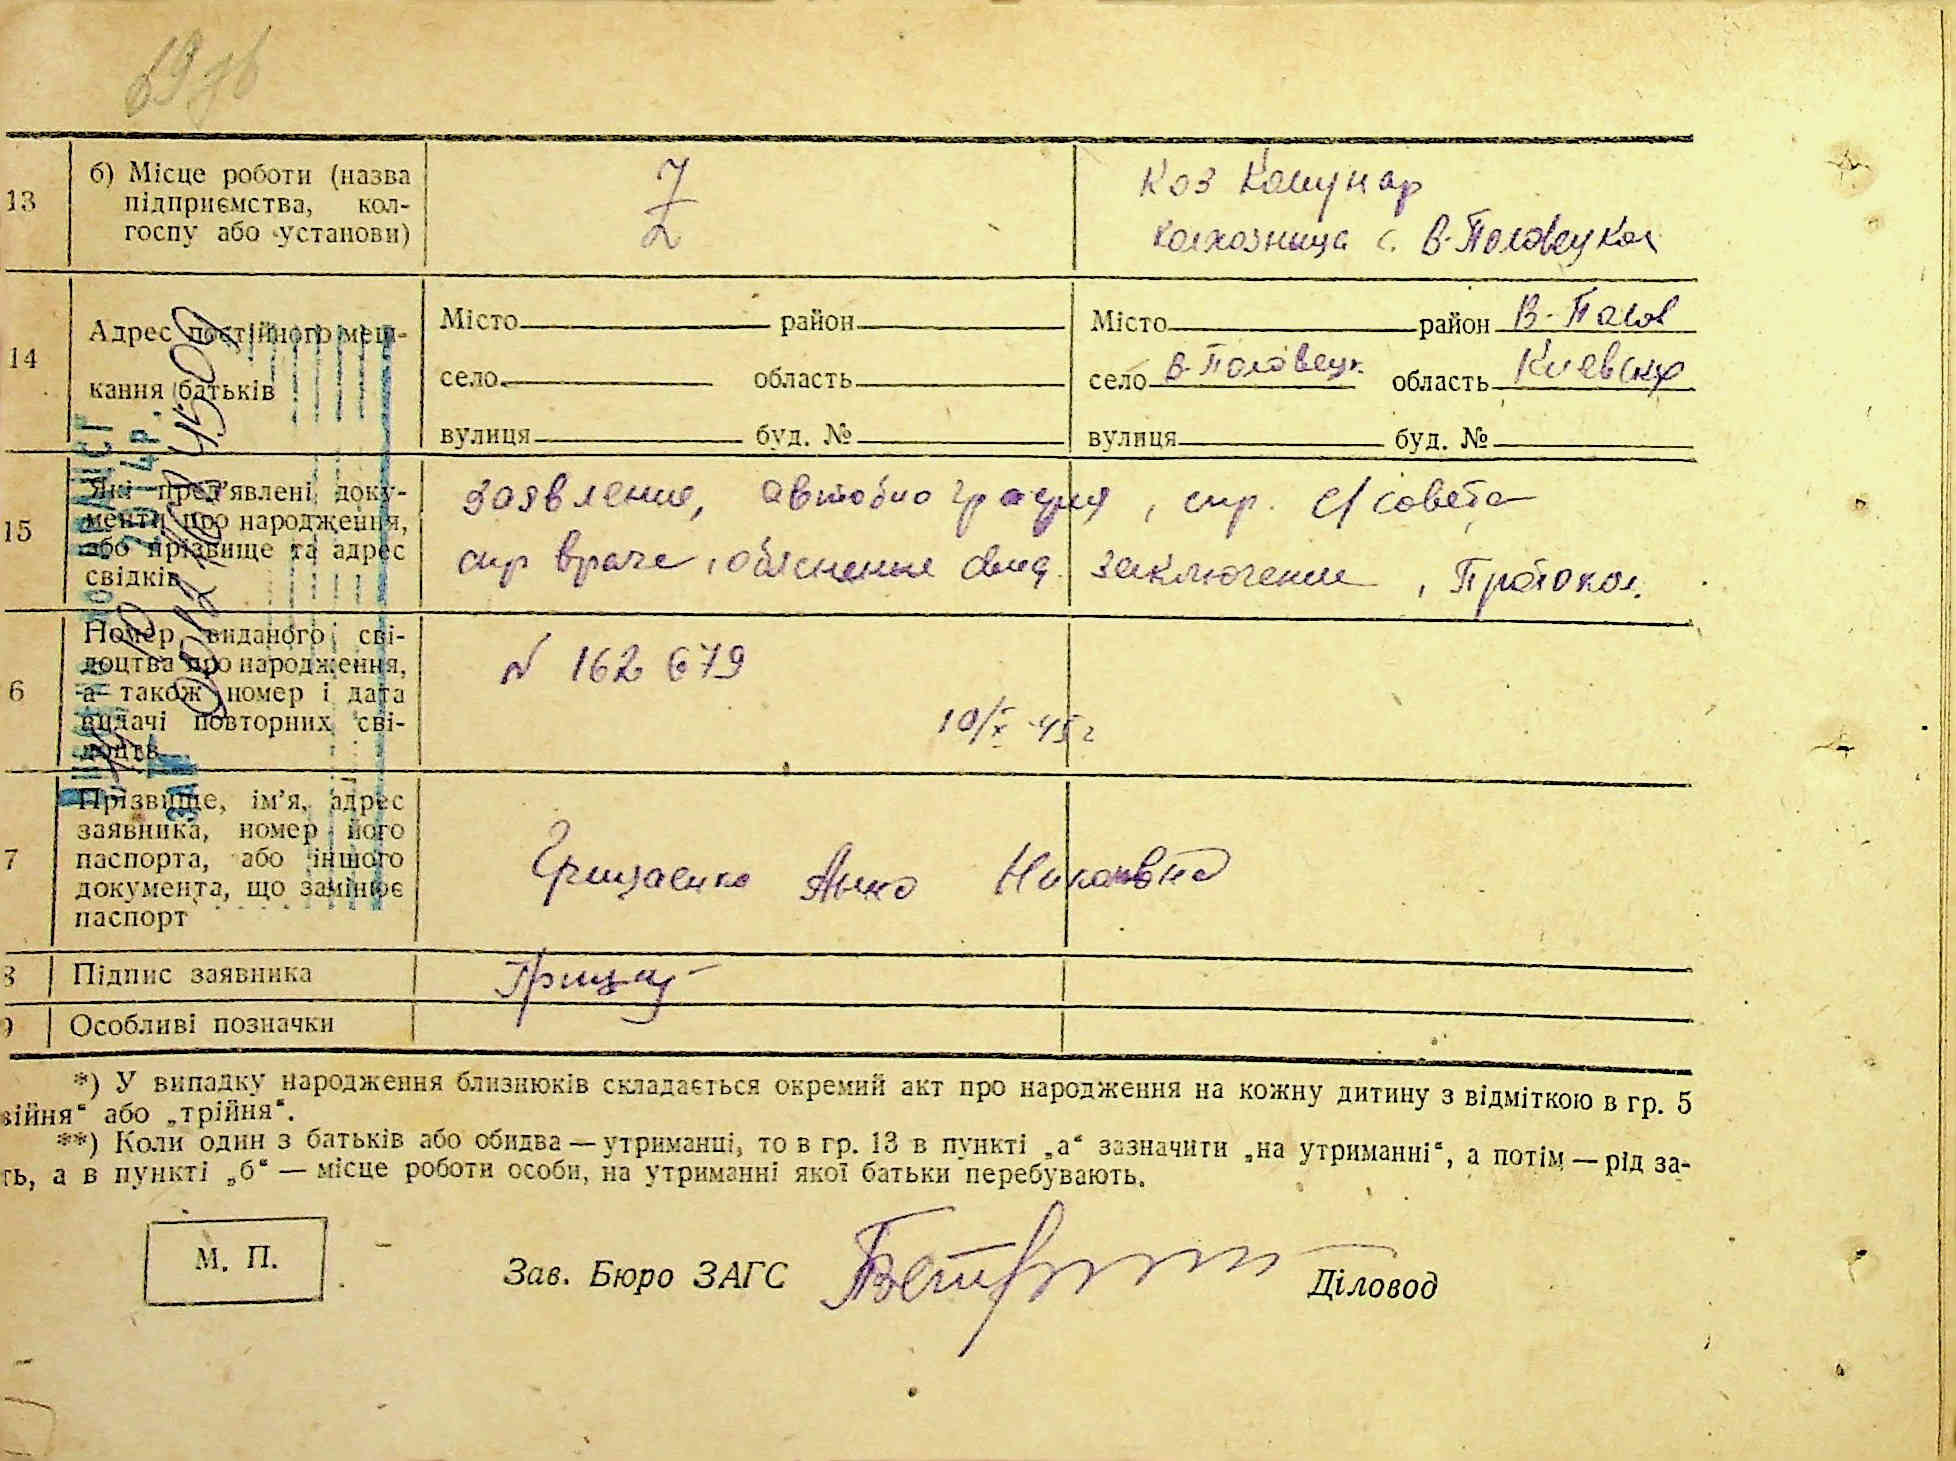 69 зв
13
б) Місце роботи (назва
підприємства, кол-
госпу або установи)
Z
Коз Комунар
колхозница с. В-Половецкое
14
Адрес постійного меш-
кання батьків
Місто район
село область
вулиця буд. №
Місто район В-Полов
село В-Половецк. область Киевская
вулиця буд. №
15
Які пред'явлені доку-
менти про народження,
або прізвище та адрес
свідків
заявление, автобиография, спр. с/совета
спр врача, объяснение свид. заключение, Протокол.
6
Номер виданого сві-
доцтва про народження,
а також номер і дата
видачі повторних сві-
доцтв
N 162679
10/X 45 г
7
Прізвище, ім'я, адрес
заявника, номер його
паспорта, або іншого
документа, що замінює
паспорт
Грищенко Анна
8
Підпис заявника
Грищ
9
Особливі позначки
*) У випадку народження близнюків складається окремий акт про народження на кожну дитину з відміткою в гр. 5
війня“ або „трійня“.
**) Коли один з батьків або обидва — утриманці, то в гр. 13 в пункті „а“ зазначити „на утриманні“, а потім — рід за-
ть, а в пункті „б“ — місце роботи особи, на утриманні якої батьки перебувають.
М. П.
Зав. Бюро ЗАГС
Діловод